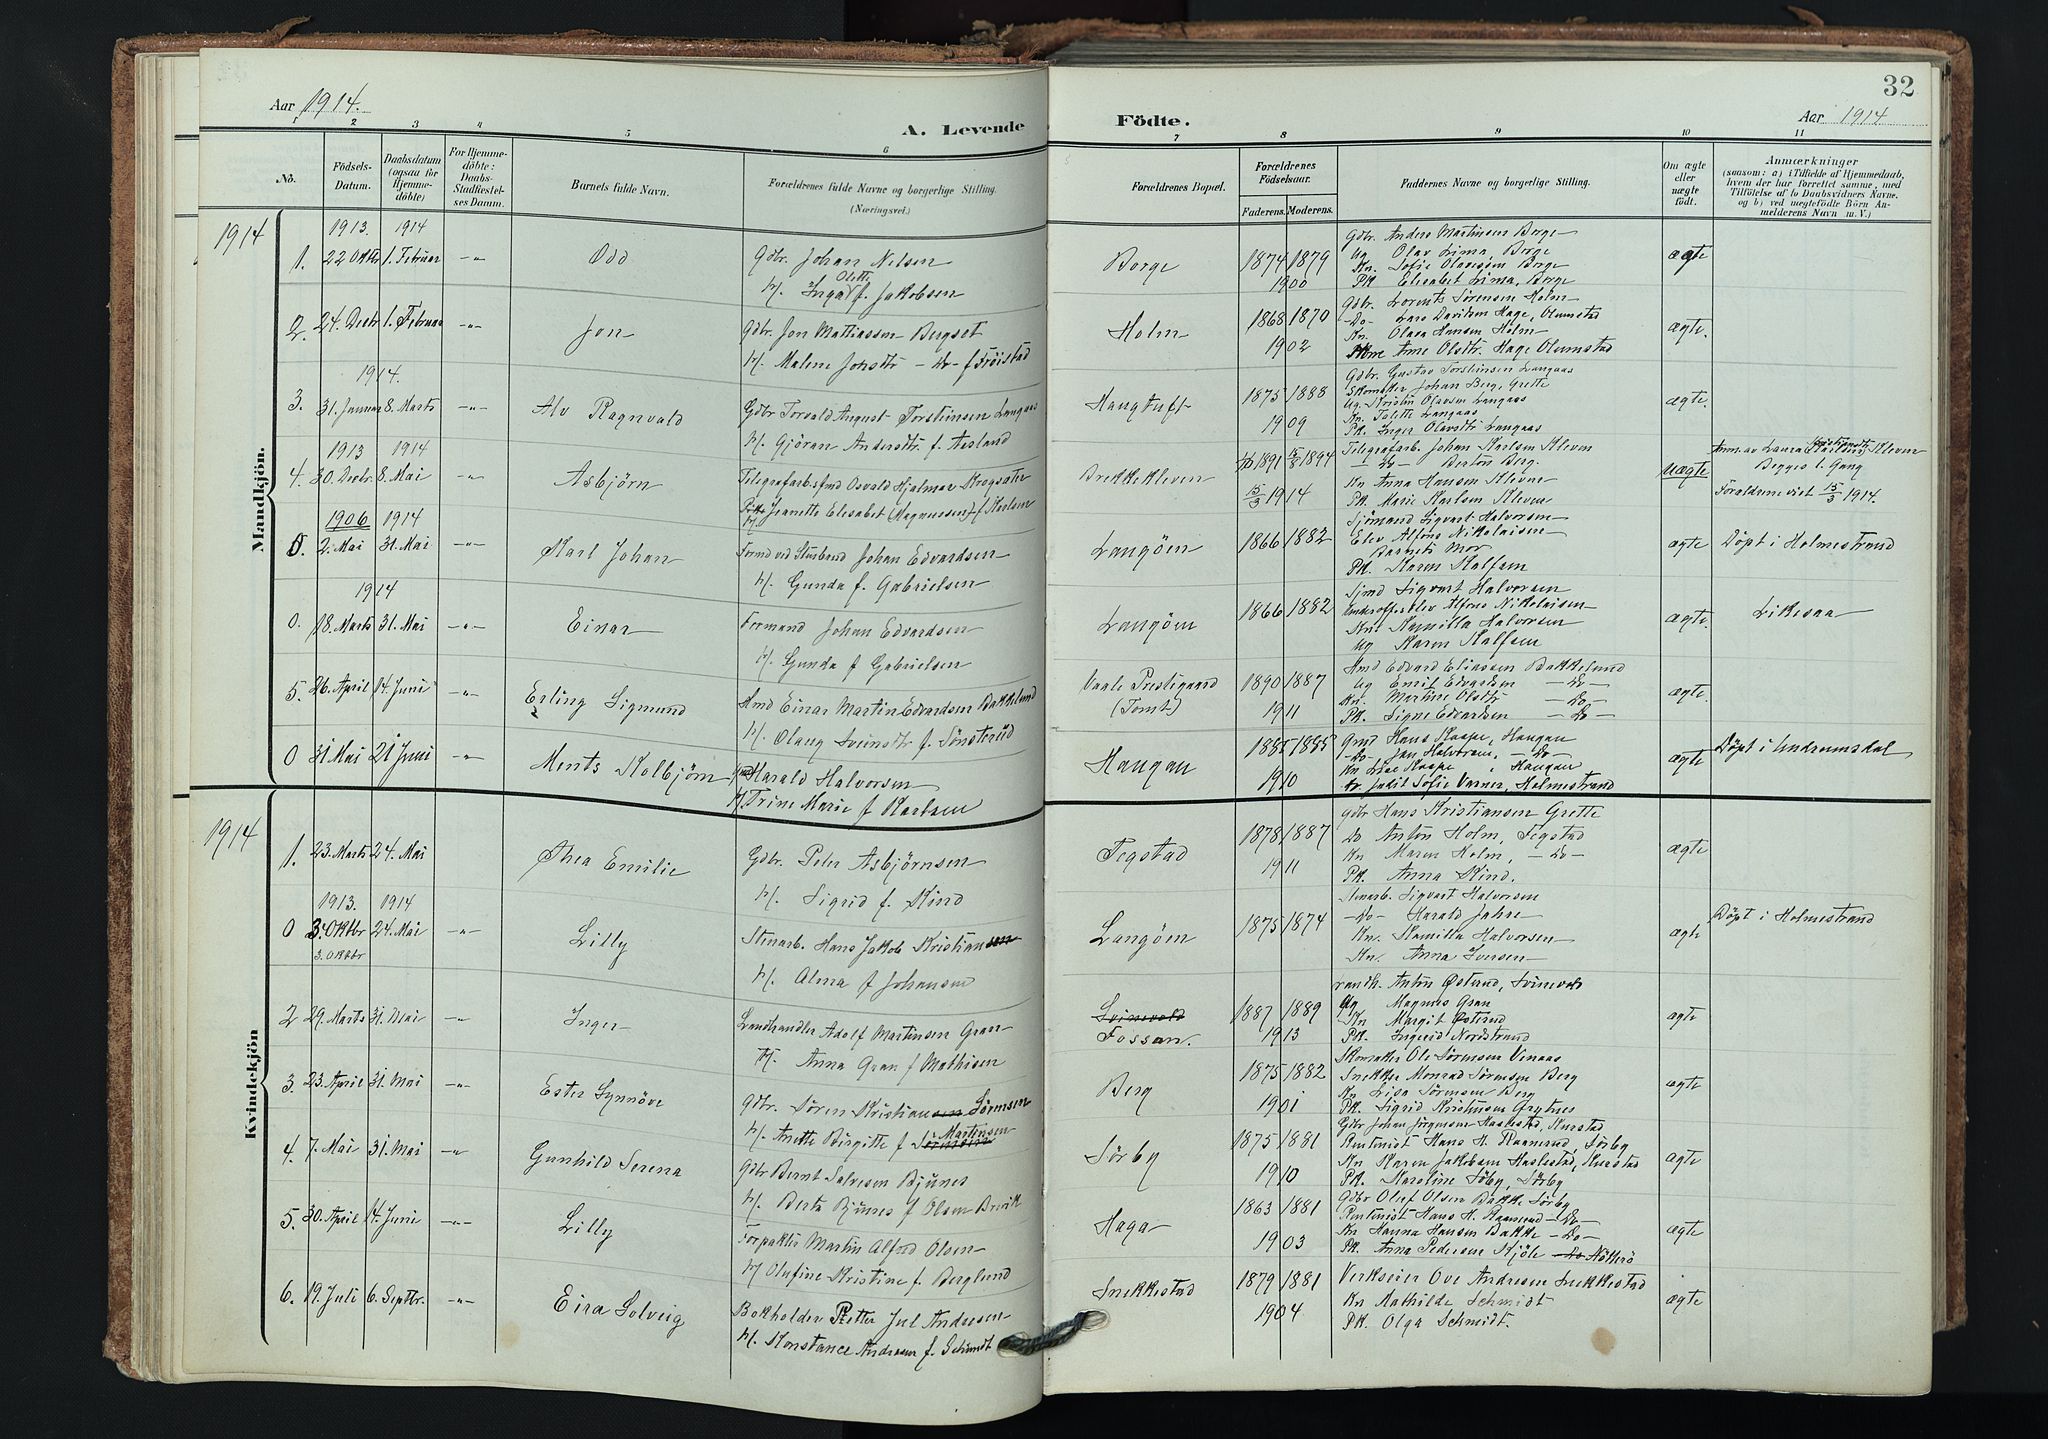 32
Aar 1914.
A. Levende
Födte.
Aar 1914
1 2 3 4 5 6 7 8 9 10 11
No.
Födsels-Datum.
Daabsdatum (ogsaa för Hjemme-döbte)
For Hjemme-döbte: Daabs-Stadfæstel-ses Datum.
Barnets fulde Navn.
Forældrenes fulde Navne og borgerlige Stilling. (Næringsvei.)
Forældrenes Bopæl.
Forældrenes Födselsaar.
Faderens. Moderens.
Faddernes Navne og borgerlige Stilling.
Om ægte eller uægte födt.
Anmærkninger
(saasom: a) i Tilfælde af Hjemmedaab, hvem der har forrettet samme, med Tilföielse af to Daabsvidners Navne. og b) ved uægtefödte Börn An-melderens Navn m. V.)
Mandkjön.
1914
1913. 1914
1. 22 Oktbr 1. Februar -"- Odd
Gdbr. Johan Nilsen
H. Inga Olette f. Jakobsen
Borge 1874 1879
1900
Gdbr. Anders Martinsen Borge
Ug Olav Lima, Borge
Kn. Sofie Olavesen Borge
Pk Elisabet Lima, Borge
ægte
2. 24. Decbr 1. Februar -"- Jon
Gdbr Jon Mathiassen Bergset
H. Malene Jonsdtr -Do- f Fröistad
Holm 1868 1870
1902
Gdbr. Lorents Sörensen Holm
-Do- Lars Davidsen Hage, Olumstad
Kn. Olava Hansen Holm
Anne Olsdtr. Hage Olumstad
ægte.
1914.
3. 31. Januar 8. Marts -"- Alv Ragnvald
Gdbr Torvald August Torsteinsen Langaas
H. Gjöran Andersdtr f. Aasland
Haugtuft 1875 1888
1909
Gdbr. Gustav Torsteinsen Langaas
Skomaker Johan Berg, Grette
Ug. Kristin Olavsen Langaas
Kn. Tolette Langaas
Pk. Inger Olavsdtr Langaas
ægte.
1913 1914
4. 30. Decbr 8. Mai -"- Asbjörn
Telegrafarbsfmd Osvald Hjalmar Krogsater
H. Jeanette Elisabet (Magnussen) f Karlsen
Brekkekleven 1891 1894
15/3 1914
Telegrafarb. Johan Karlsen Kleven
-Do- Berton Berg.
Kn Anna Hansen Klevne
Pk. Marie Karlsen Kleven
uægte
Anm. av Laura Karlsen, Kleven
Begges 1. Gang
Foraldrene viet 15/3 1914.
1906 1914
0. 2. Mai 31. Mai -"- Karl Johan
Formd ved Stenbrud Johan Edvardsen
H. Gunda f. Gabrielsen
Langöen 1866 1882
Sjömand Sigvart Halvorsen
Elev Alfons Nikolaisen
Barnets Mor
Pk. Karen Kalsem
ægte Döpt i Holmestrand
1914
0. 18. Marts 31. Mai -"- Einar
Formand Johan Edvardsen
H. Gunda f Gabrielsen
Langöen 1866 1882
Sjmd Sigvart Halvorsen
Underoffselev Alfons Nikolaisen
Kn. Kamilla Halvorsen
Ug Karen Kalsem
ægte. Likesaa
5. 26. April 14. Juni -"- Erling Sigmund
Hmd Einar Martin Edvardsen Bakkelund
H. Olaug Sveinsdtr f. Sönsteröd
Vaale Prestegaard (Tomt.) 1890 1887
1911
Hmd Edvard Eliassen Bakkelund
Ug Emil Edvardsen -Do-
Kn. Martine Olsdtr -Do-
Pk. Signe Edvardsen -Do-
ægte.
0 31 Mai 21 Juni -"- Ments Kolbjörn
Gmd Harald Halvorsen
H Trine Marie f Karlsen
Haugan 1885 1885
1910
Gmd Hans Kaspe, Haugan
-Do- Jan Halvorsen, -Do-
Kn Lise Kaspe, Haugan
Fr. Judit Sofie Varner, Holmestrand
ægte Döpt i Undrumsdal
Kvindekjön
1914
1. 23. Marts 24. Mai Thea Emilie
Gdbr. Peter Asbjörnsen
H. Sigrid f. Kind
Tegstad 1878 1887
1911
Gdbr Hans Kristiansen Grette
Do Anton Holm, Tegstad
Kn Maren Holm, -Do-
Pk. Anna Kind.
ægte
1913. 1914
0 3. Oktbr 24. Mai -"- Lilly
3. Oktbr
Stenarb. Hans Jakob Kristiansen
H. Alma f Johansen
Langöen 1875 1874
Stenarb. Sigvart Halvorsen
-Do- Harald Jahre
Kn. Kamilla Halvorsen
Kn. Anna Iversen
ægte Döpt i Holmestrand
2 29. Marts 31. Mai -"- Inger
Landhandler Adolf Martinsen Gran
H. Anna Gran f Mathisen
Svinevold
Fossan. 1887 1889
1913
Landh. Anton Östrud, Svinevold
Ug Magnus Gran
Kn Margit Östrud
Pk. Ingrid Nordstrand
ægte
3. 23. April 31. Mai -"- Ester Synnöve
Gdbr. Sören Kristiansen Sörensen
H. Anette Birgitte f Sörensen Martinsen
Berg 1875 1882
1901
Skomaker Ole Sörensen Venaas
Snekker Monrad Sörensen Berg
Kn Lisa Sörensen Berg
Pk. Sigrid Kristiansen Grytnes
ægte
4. 7. Mai 31. Mai -"- Gunhild Serena
Gdbr Bernt Salvesen Bjunes
H. Berta Bjunes f Olsen Brevik
Sörby 1875 1881
1910
Gdbr Johan Jörgensen Haslestad, Kurstad
Rentenist Hans H. Raanerud, Sörby
Kn Karen Jakobsen Haslestad, Kurstad
Pk. Karoline Söby, Sörby
ægte
5. 30. April 14. Juni -"- Lilly
Forpakter Martin Alfred Olsen
H Olufine Kristine f. Berglund
Haga 1863 1881
1903
Gdbr Oluf Olsen Bakke Sörby
Rentenist Hans H. Raanerud -Do-
Kn Hanna Hansen Bakke -Do-
Pk. Anna Pedersen Kjöle Do Nötterö
ægte
6. 19. Juli 6. Septbr. -"- Eira Solveig
Bokholder Petter Jul Andresen
H. Konstance Andresen f. Schmidt
Snekkestad 1879 1881
1904
Verkseier Ove Andresen Snekkestad
Kn Mathilde Schmidt
Pk. Olga Schmidt.
ægte